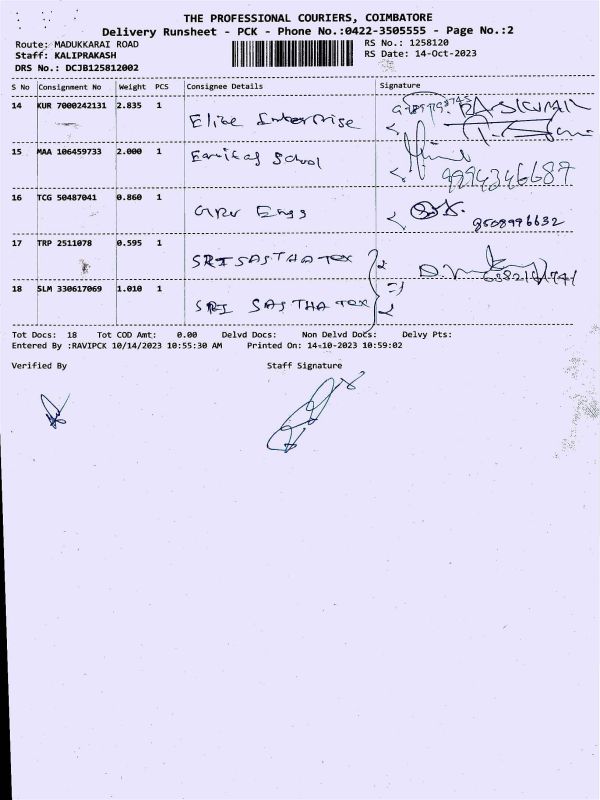 THE PROFESSIONAL COURIERS, COIMBATORE
Delivery Runsheet - PCK - Phone No.:0422-3505555 - Page No.:2
Route: MADUKKARAI ROAD RS No.: 1258120
Staff: KALIPRAKASH RS Date: 14-Oct-2023
DRS No.: DCJB125812002
S No Consignment No Weight PCS Consignee Details Signature
14 KUR 7000242131 2.835 1 Elite Enterprise
15 MAA 106459733 2.000 1 School 9994346687
16 TCG 50487041 0.860 1 Engg 9508996632
17 TRP 2511078 0.595 1 SRI SASTHA TEX
18 SLM 330617069 1.010 1 SRI SASTHA TEX
Tot Docs: 18 Tot COD Amt: 0.00 Delvd Docs: Non Delvd Docs: Delvy Pts:
Entered By :RAVIPCK 10/14/2023 10:55:30 AM Printed On: 14-10-2023 10:59:02
Verified By Staff Signature